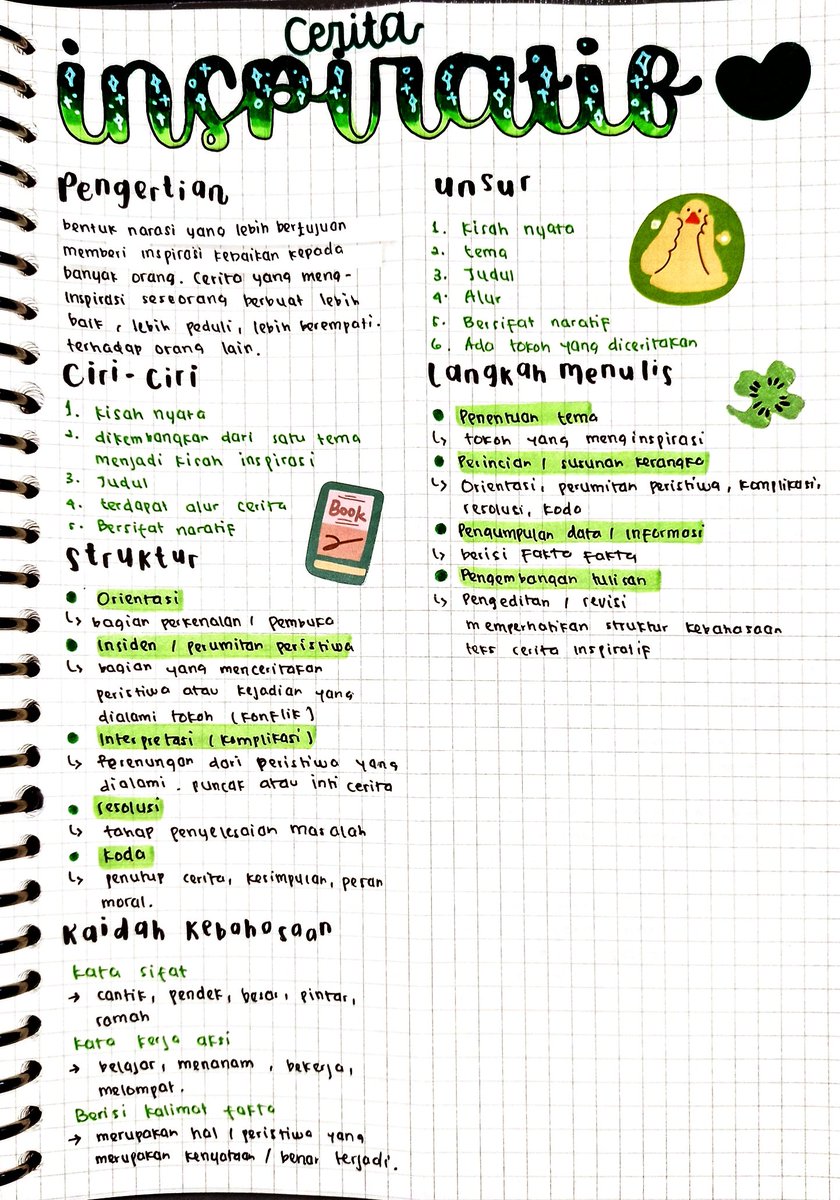 Cerita
inspiratif
Pengertian
bentuk narasi yang lebih bertujuan
memberi inspirasi kebaikan kepada
banyak orang. Cerita yang meng-
Inspirasi seseorang berbuat lebih
baik, lebih peduli, lebih berempati.
terhadap orang lain.
Ciri-Ciri
1. kisah nyata
2. dikembangkan dari satu tema
menjadi kisah inspirasi
3. Judul
4. terdapat alur cerita
5. Bersifat naratif
Book
Struktur
Orientasi
↳ bagian perkenalan / Pembuka
Insiden / perumitan peristiwa
↳ bagian yang menceritakan
peristiwa atau kejadian yang
dialami tokoh (konflik)
Interpretasi (komplikasi)
↳ Perenungan dari peristiwa yang
dialami. puncak atau inti cerita
resolusi
↳ tahap penyelesaian masalah
Koda
↳ penutup cerita, kesimpulan, pesan
moral.
Kaidah Kebahasaan
kata sifat
→ cantik, pendek, besar, pintar,
ramah
kata kerja aksi
→ belajar, menanam, bekerja,
melompat.
Berisi kalimat fakta
→ merupakan hal / peristiwa yang
merupakan kenyataan / benar terjadi.
unsur
1. kisah nyata
2. tema
3. Judul
4. Alur
5. Bersifat naratif
6. Ada tokoh yang diceritakan
Langkah menulis
Penentuan tema
↳ tokoh yang menginspirasi
Perincian / susunan kerangka
↳ Orientasi, perumitan peristiwa, komplikasi,
resolusi, koda
Pengumpulan data / informasi
↳ berisi fakta fakta
Pengembangan tulisan
↳ Pengeditan / revisi
memperhatikan struktur kebahasaan
teks cerita inspiratif